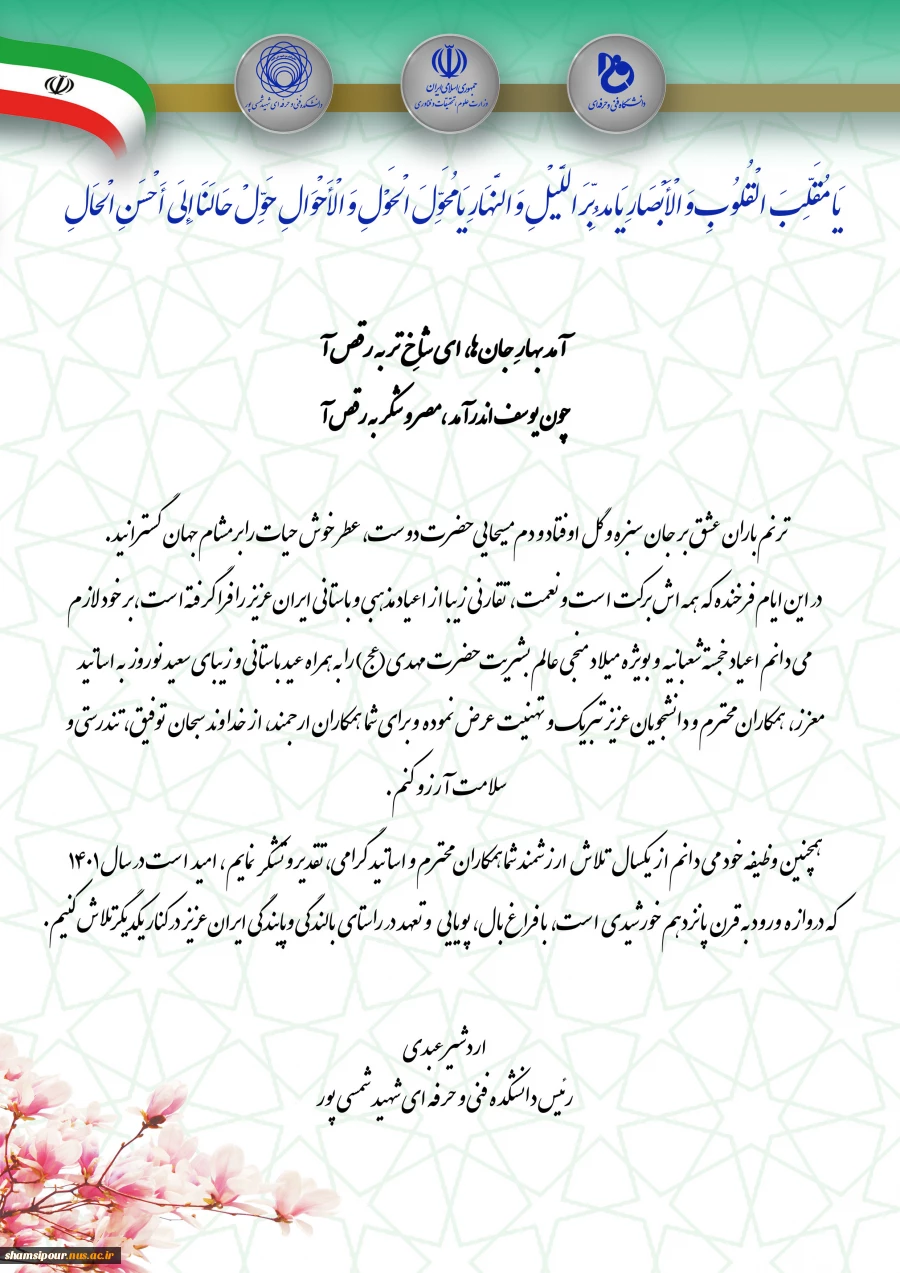 دانشگاه فنی و حرفه‌ای
جمهوری اسلامی ایران
وزارت علوم، تحقیقات و فناوری
دانشکده فنی و حرفه ای شهید شمسی پور
يَا مُقَلِّبَ الْقُلُوبِ وَ الْأَبْصَارِ يَا مُدَبِّرَ اللَّيْلِ وَ النَّهَارِ يَا مُحَوِّلَ الْحَوْلِ وَ الْأَحْوَالِ حَوِّلْ حَالَنَا إِلَى أَحْسَنِ الْحَالِ
آمد بهارِ جان ها، ای شاخِ تر به رقص آ
چون یوسف اندر آمد، مصر و شکر به رقص آ
ترنم باران عشق بر جان سبزه و گل اوفتاد و دم مسیحایی حضرت دوست، عطر خوش حیات را بر مشام جهان گسترانید.
در این ایام فرخنده که همه اش برکت است و نعمت، تقارنی زیبا از اعیاد مذهبی و باستانی ایران عزیز را فرا گرفته است، بر خود لازم
می دانم اعیاد خجسته شعبانیه و بویژه میلاد منجی عالم بشریت حضرت مهدی (عج) را به همراه عید باستانی و زیبای سعید نوروز به اساتید
معزز، همکاران محترم و دانشجویان عزیز تبریک و تهنیت عرض نموده و برای شما همکاران ارجمند، از خداوند سبحان توفیق، تندرستی و
سلامت آرزو کنم.
همچنین وظیفه خود می دانم از یکسال تلاش ارزشمند شما همکاران محترم و اساتید گرامی، تقدیر و تشکر نمایم، امید است در سال ۱۴۰۱
که دروازه ورود به قرن پانزدهم خورشیدی است، با فراغ بال، پویایی و تعهد در راستای بالندگی و پایندگی ایران عزیز در کنار یکدیگر تلاش کنیم.
اردشیر عبدی
رئیس دانشکده فنی و حرفه ای شهید شمسی پور
shamsipour.nus.ac.ir